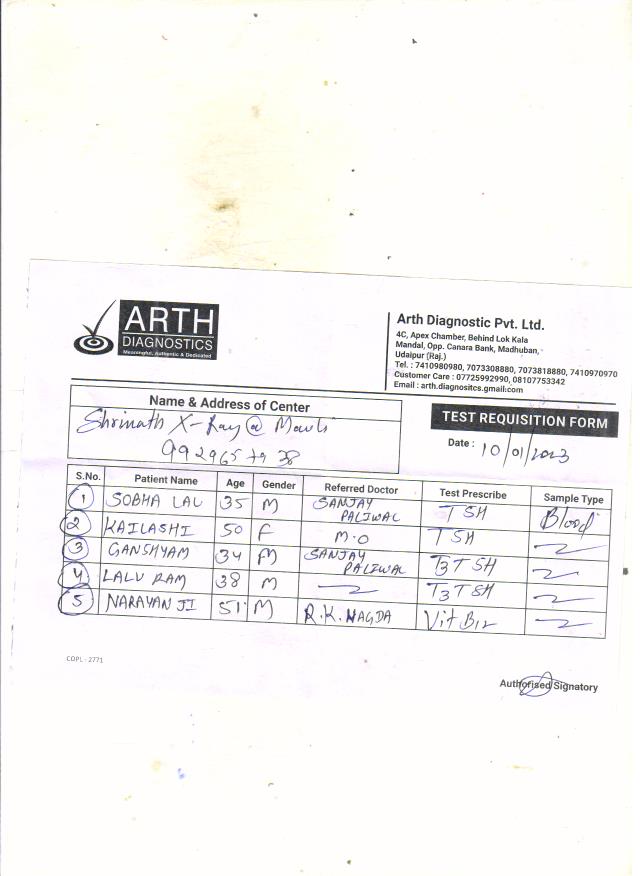 ARTH
DIAGNOSTICS
Meaningful, Authentic & Dedicated
Arth Diagnostic Pvt. Ltd.
4C, Apex Chamber, Behind Lok Kala
Mandal, Opp. Canara Bank, Madhuban,
Udaipur (Raj.)
Tel. : 7410980980, 7073308880, 7073818880, 7410970970
Customer Care : 07725992990, 08107753342
Email : arth.diagnositcs.gmail.com
Name & Address of Center
Shrinath X-Ray @ Mavli
TEST REQUISITION FORM
Date : 10/01/2023
S.No. Patient Name Age Gender Referred Doctor Test Prescribe Sample Type
1 SOBHA LAL 35 M SANJAY PALIWAL TSH Blood
2 KAILASHI 50 F M.O TSH
3 GANSHYAM 34 M SANJAY PALIWAL T3 TSH
4 LALU RAM 38 M T3 TSH
5 NARAYAN JI 51 M R.K. NAGDA Vit B12
CDPL - 2771
Authorised Signatory